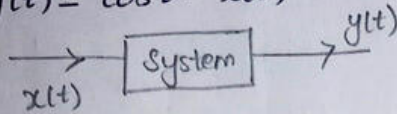 y(t)
System
x(t)